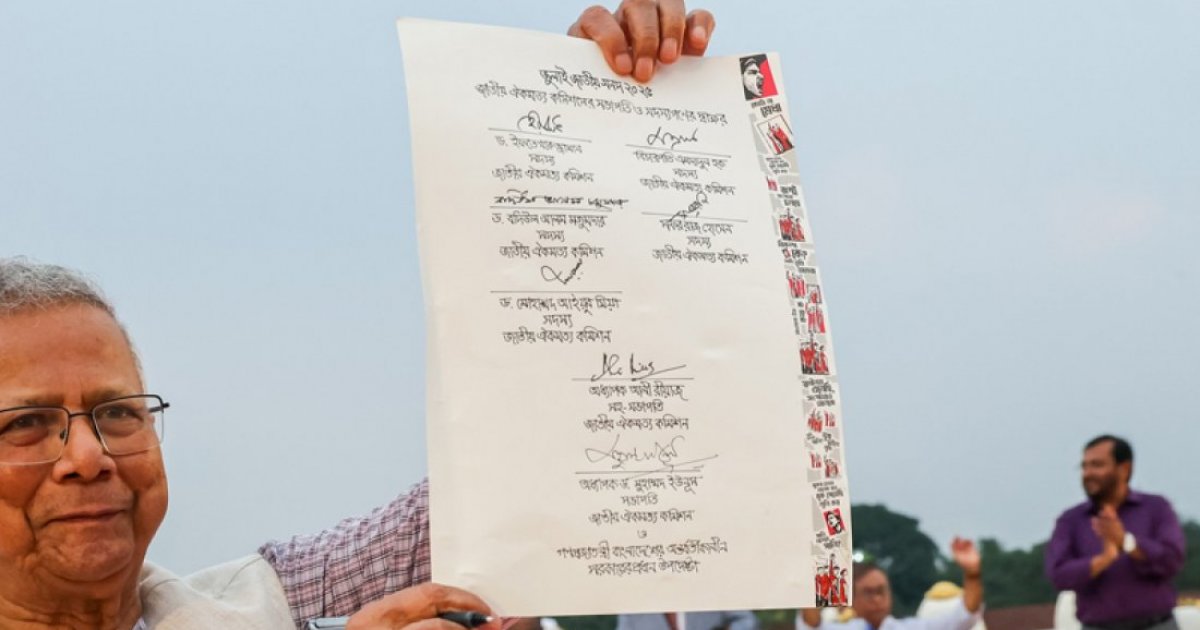 জুলাই জাতীয় সনদ ২০২৫
জাতীয় ঐকমত্য কমিশনের সভাপতি ও সদস্যগণের স্বাক্ষর
ড. ইফতেখারুজ্জামান
সদস্য
জাতীয় ঐকমত্য কমিশন
বিচারপতি এমদাদুল হক
সদস্য
জাতীয় ঐকমত্য কমিশন
বদিউল আলম মজুমদার
ড. বদিউল আলম মজুমদার
সদস্য
জাতীয় ঐকমত্য কমিশন
সফর রাজ হোসেন
সদস্য
জাতীয় ঐকমত্য কমিশন
ড. মোহাম্মদ আইয়ুব মিয়া
সদস্য
জাতীয় ঐকমত্য কমিশন
অধ্যাপক আলী রীয়াজ
সহ-সভাপতি
জাতীয় ঐকমত্য কমিশন
অধ্যাপক ড. মুহাম্মদ ইউনূস
সভাপতি
জাতীয় ঐকমত্য কমিশন
ও
গণপ্রজাতন্ত্রী বাংলাদেশের অন্তর্বর্তীকালীন
সরকারের প্রধান উপদেষ্টা